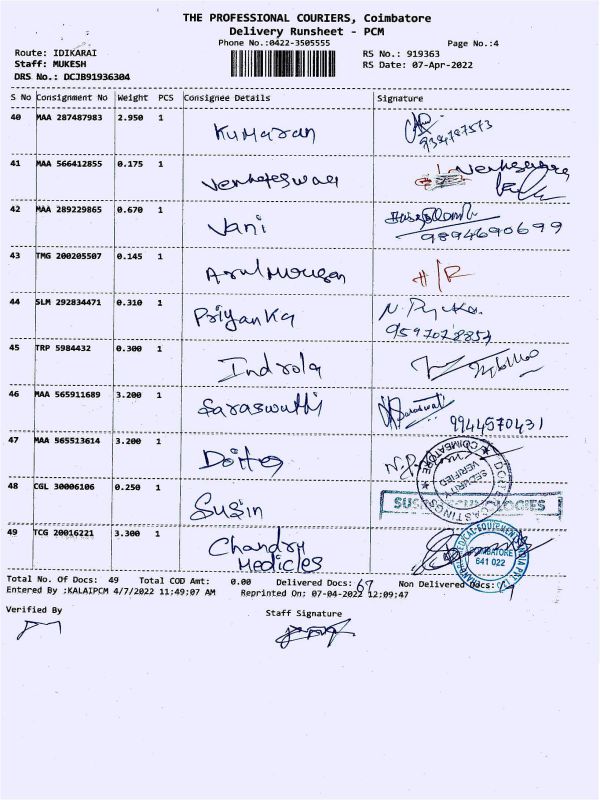 THE PROFESSIONAL COURIERS, Coimbatore
Delivery Runsheet - PCM
Phone No.:0422-3505555
Page No.:4
Route: IDIKARAI
RS No.: 919363
Staff: MUKESH
RS Date: 07-Apr-2022
DRS No.: DCJB91936304
S No Consignment No Weight PCS Consignee Details Signature
40 MAA 287487983 2.950 1 Kumaran
41 MAA 566412855 0.175 1 Venkateswaa
42 MAA 289229865 0.670 1 Vani 9894690699
43 TMG 200205507 0.145 1 Arulmurugan H/R
44 SLM 292834471 0.310 1 Priyanka
45 TRP 5984432 0.300 1 Indrola
46 MAA 565911689 3.200 1 Saraswathi Saraswati 9944570431
47 MAA 565513614 3.200 1 COIMBATORE SECURITY VERIFIED CASTINGS
48 CGL 30006106 0.250 1 Susin
49 TCG 20016221 3.300 1 Chandra Medicles COIMBATORE 641 022
Total No. Of Docs: 49 Total COD Amt: 0.00 Delivered Docs: 67 Non Delivered Docs:
Entered By :KALAIPCM 4/7/2022 11:49:07 AM Reprinted On: 07-04-2022 12:09:47
Verified By
Staff Signature